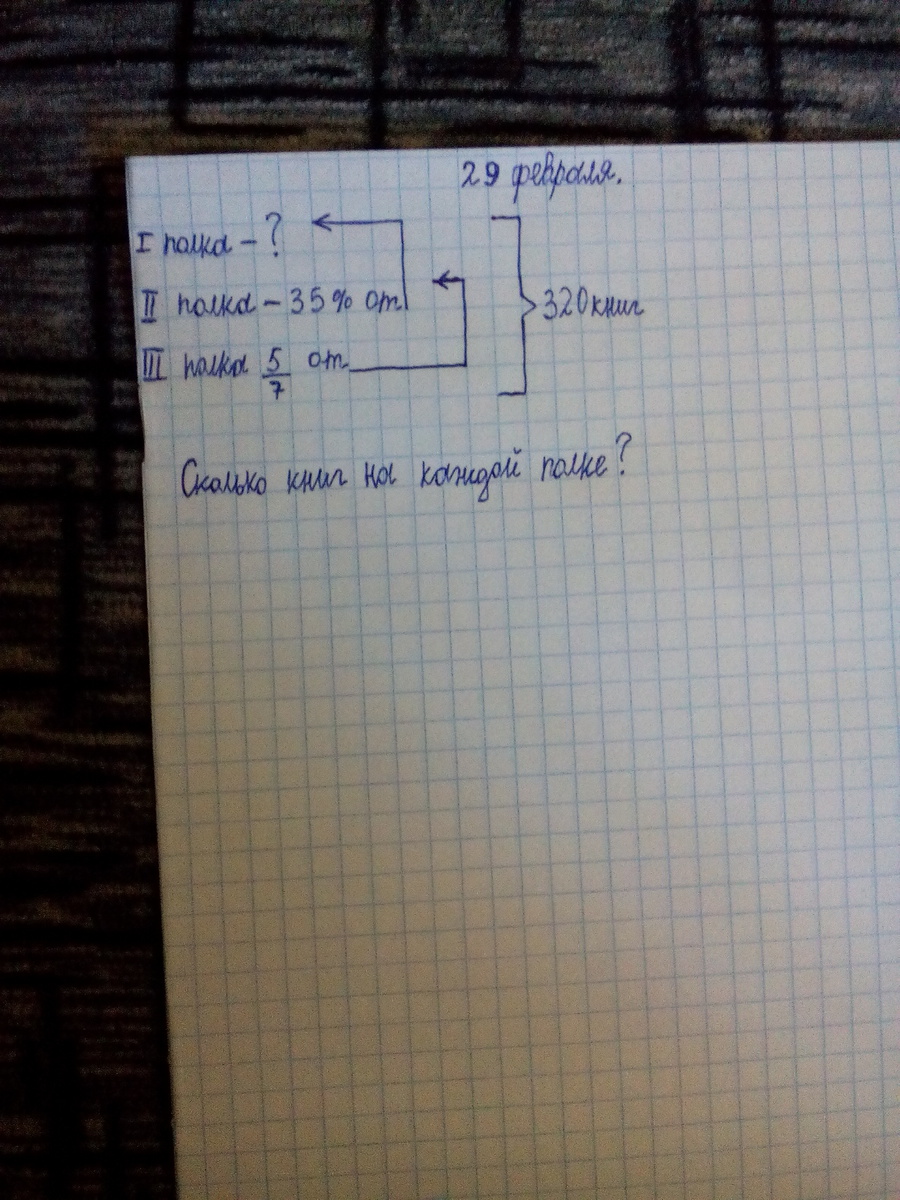 29 февраля.
I полка - ?
II полка - 35% от
III полка 5/7 от
320 книг
Сколько книг на каждой полке?